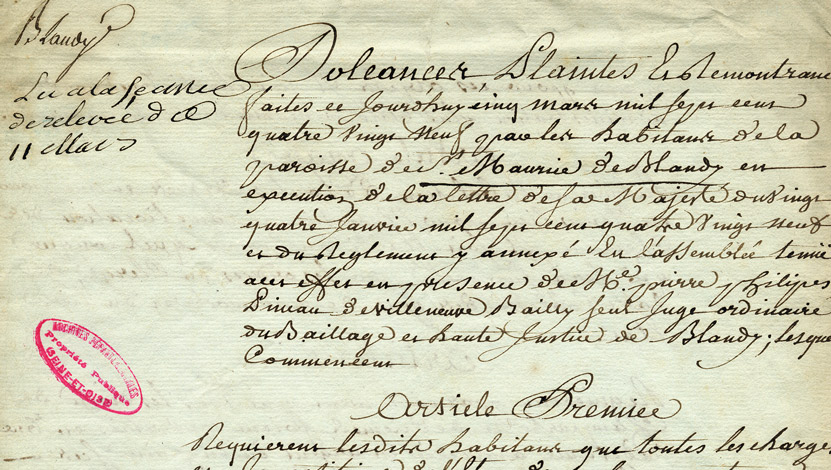 Blandy
Lu a la seance
de relevée du
11 Mars
Doleances Plaintes Et Remontranc
faites ce Jourdhuy cinq mars mil sept cent
quatre vingt neuf par les habitans de la
paroisse de St Maurice de Blandy en
execution de la lettre de sa Majesté du vingt
quatre Janvier mil sept cent quatre vingt neuf
et du Reglement y annexé En l'assemblée tenue
acet effet en presence de Me pierre philipes
Pineau de villeneuve Bailly seul Juge ordinaire
du Baillage et haute Justice de Blandy; lesque
Commencent
Article Premier
Requierent lesdits habitans que toutes les charge
ARCHIVES DEPARTEMENTALES
Propriété Publique
(SEINE-ET-OISE)